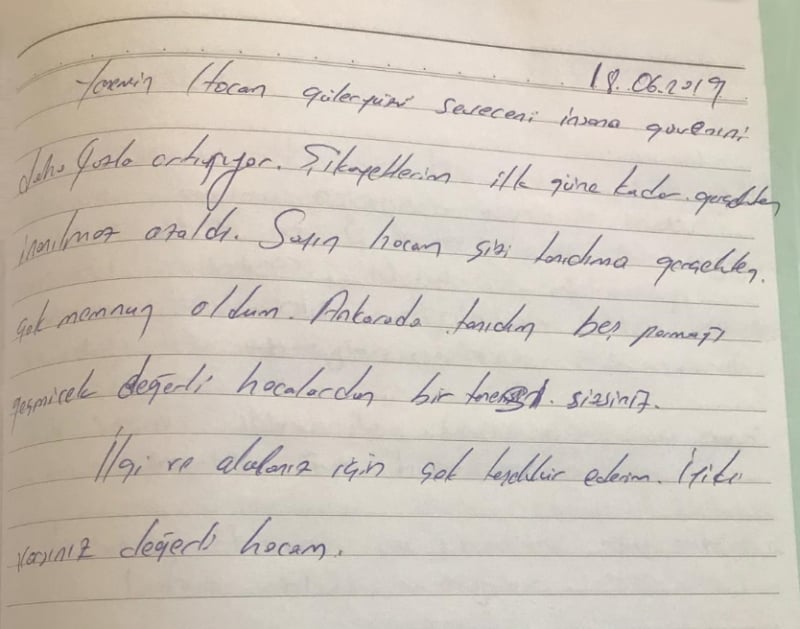 18.06.2019
Hocam güleryüzü seveceni insana güvenini
daha fazla artırıyor. Şikayetlerim ilk güne kadar gerçekten
inanılmaz azaldı. Sayın hocam sizi tanıdıma gerçekten
çok memnun oldum. Ankarada tanıdım beş parmağı
geçmicek değerli hocalardan bir tanesi sizsiniz.
İlgi ve alakanız için çok teşekkür ederim. İyiki
varsınız değerli hocam.